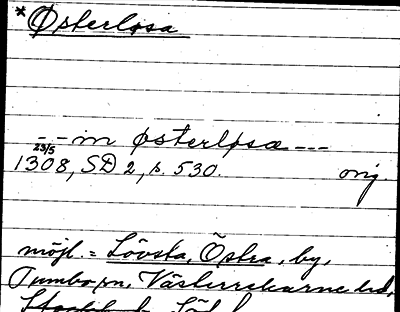 *Østerløsa
- - in østerløsæ - - -
23/5
1308, SD 2, s. 530. orig.
möjl. = Lövsta, Östra, by,
Tumbo sn, Västerrekarne hd,